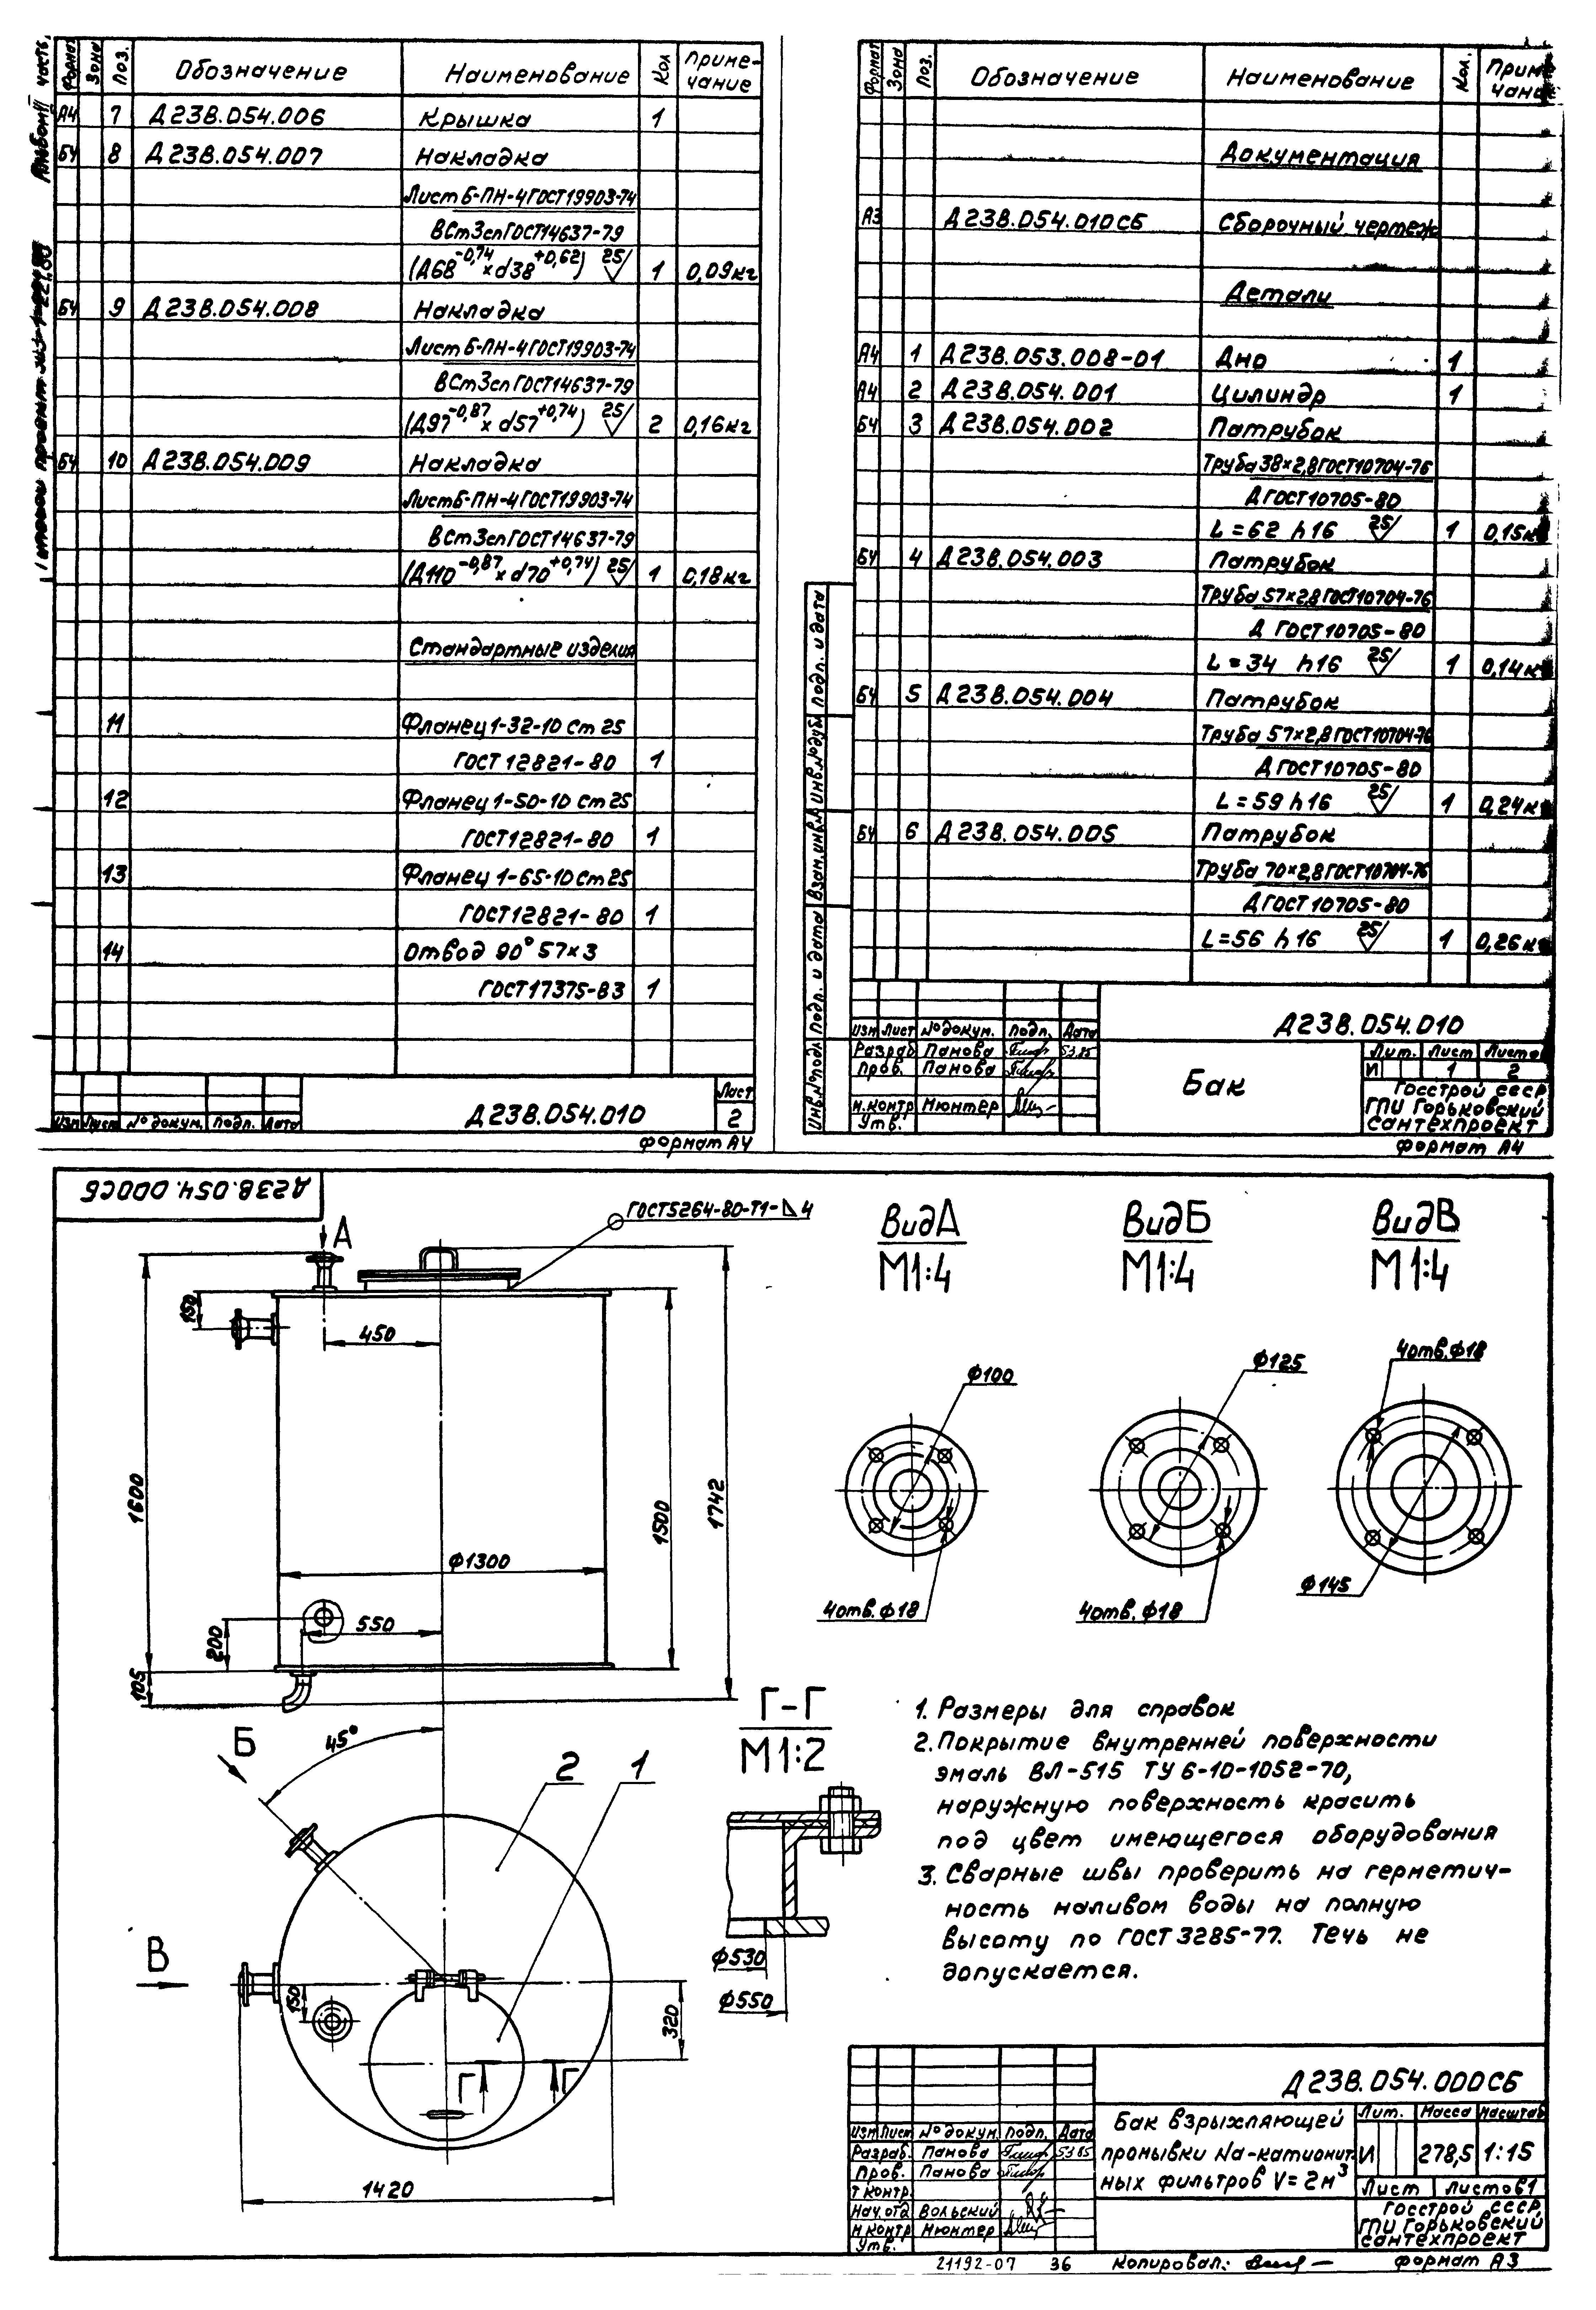 Альбом III часть
Формат Зона Поз. Обозначение Наименование Кол Приме-
чание
А4 7 Д23В.054.006 Крышка 1
БЧ 8 Д23В.054.007 Накладка
Лист Б-ПН-4 ГОСТ19903-74
ВСт3сп ГОСТ14637-79
(Д68-0,74 × d38+0,62) 25/ 1 0,09кг
БЧ 9 Д23В.054.008 Накладка
Лист Б-ПН-4 ГОСТ19903-74
ВСт3сп ГОСТ14637-79
(Д97-0,87 × d57+0,74) 25/ 2 0,16кг
БЧ 10 Д23В.054.009 Накладка
Лист Б-ПН-4 ГОСТ19903-74
ВСт3сп ГОСТ14637-79
(Д110-0,87 × d70+0,74) 25/ 1 0,18кг
Стандартные изделия
11 Фланец 1-32-10 Ст 25
ГОСТ 12821-80 1
12 Фланец 1-50-10 Ст 25
ГОСТ12821-80 1
13 Фланец 1-65-10 Ст 25
ГОСТ12821-80 1
14 Отвод 90° 57×3
ГОСТ17375-83 1
Изм Лист № докум. Подп. Дата
Д23В.054.010
Лист
2
Формат А4
Формат Зона Поз. Обозначение Наименование Кол. Приме
чание
Документация
А3 Д23В.054.010СБ Сборочный чертеж
Детали
А4 1 Д23В.053.008-01 Дно 1
А4 2 Д23В.054.001 Цилиндр 1
БЧ 3 Д23В.054.002 Патрубок
Труба 38×2,8 ГОСТ10704-76
Д ГОСТ10705-80
L=62 h16 25/ 1 0,15кг
БЧ 4 Д23В.054.003 Патрубок
Труба 57×2,8 ГОСТ10704-76
Д ГОСТ10705-80
L=34 h16 25/ 1 0,14кг
БЧ 5 Д23В.054.004 Патрубок
Труба 57×2,8 ГОСТ10704-76
Д ГОСТ10705-80
L=59 h16 25/ 1 0,24кг
БЧ 6 Д23В.054.005 Патрубок
Труба 70×2,8 ГОСТ10704-76
Д ГОСТ10705-80
L=56 h16 25/ 1 0,26кг
Подп. и дата
Инв.№дубл
Взам.инв.№
Подп. и дата
Инв.№подл
Изм Лист № докум. Подп. Дата
Разраб Панова 5.3.85
Пров. Панова
Н.контр Мюнтер
Утв.
Д23В.054.010
Бак
Лит. Лист Листов
И 1 2
Госстрой СССР
ГПИ Горьковский
сантехпроект
Формат А4
Д23В.054.000СБ
ГОСТ5264-80-Т1-⊿4
А
150
450
1600
1500
1742
Ф1300
550
200
105
Вид А
М1:4
Ф100
4отв.Ф18
Вид Б
М1:4
Ф125
4отв.Ф18
Вид В
М1:4
4отв.Ф18
Ф145
Б
45°
2
1
В
150
320
Г Г
1420
Г-Г
М1:2
Ф530
Ф550
1. Размеры для справок
2. Покрытие внутренней поверхности
эмаль ВЛ-515 ТУ 6-10-1052-70,
наружную поверхность красить
под цвет имеющегося оборудования
3. Сварные швы проверить на герметич-
ность наливом воды на полную
высоту по ГОСТ 3285-77. Течь не
допускается.
Изм Лист № докум. Подп. Дата
Разраб. Панова 5.3.85
Пров. Панова
Т контр.
Нач.отд Вольский
Н контр Мюнтер
Утв.
Д23В.054.000СБ
Бак взрыхляющей
промывки Na-катионит-
ных фильтров V=2м³
Лит. Масса Масштаб
И 278,5 1:15
Лист Листов 1
Госстрой СССР
ГПИ Горьковский
сантехпроект
21192-07 36 Копировал: Формат А3